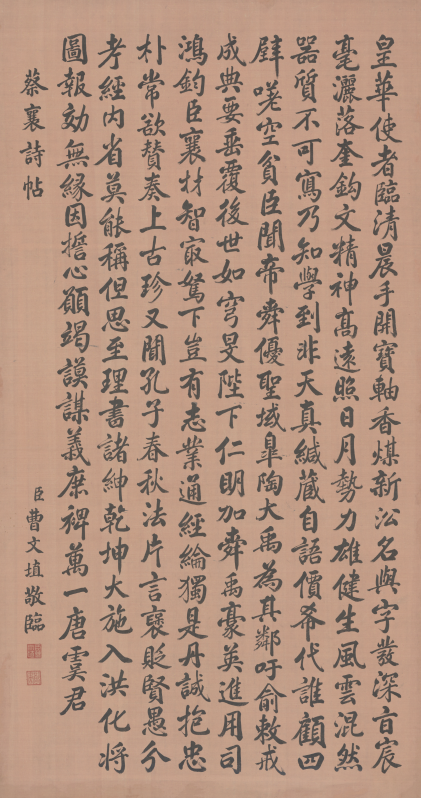 皇華使者臨清晨手開寶軸香煤新沿名與字發深旨宸
毫灑落奎鈎文精神高遠照日月勢力雄健生風雲混然
器質不可寫乃知學到非天真緘藏自語價希代誰顧四
壁嗟空貧臣聞帝舜優聖域臯陶大禹為其鄰吁俞敕戒
成典要垂覆後世如穹旻陛下仁明加舜禹豪英進用司
鴻鈞臣襄材智最駑下豈有志業通經綸獨是丹誠抱忠
朴常欲贊奏上古珍又聞孔子春秋法片言襃貶賢愚分
考經內省莫能稱但思至理書諸紳乾坤大施入洪化將
圖報効無緣因擔心願竭謨謀義庶裨萬一唐虞君
蔡襄詩帖
臣曹文埴敬臨